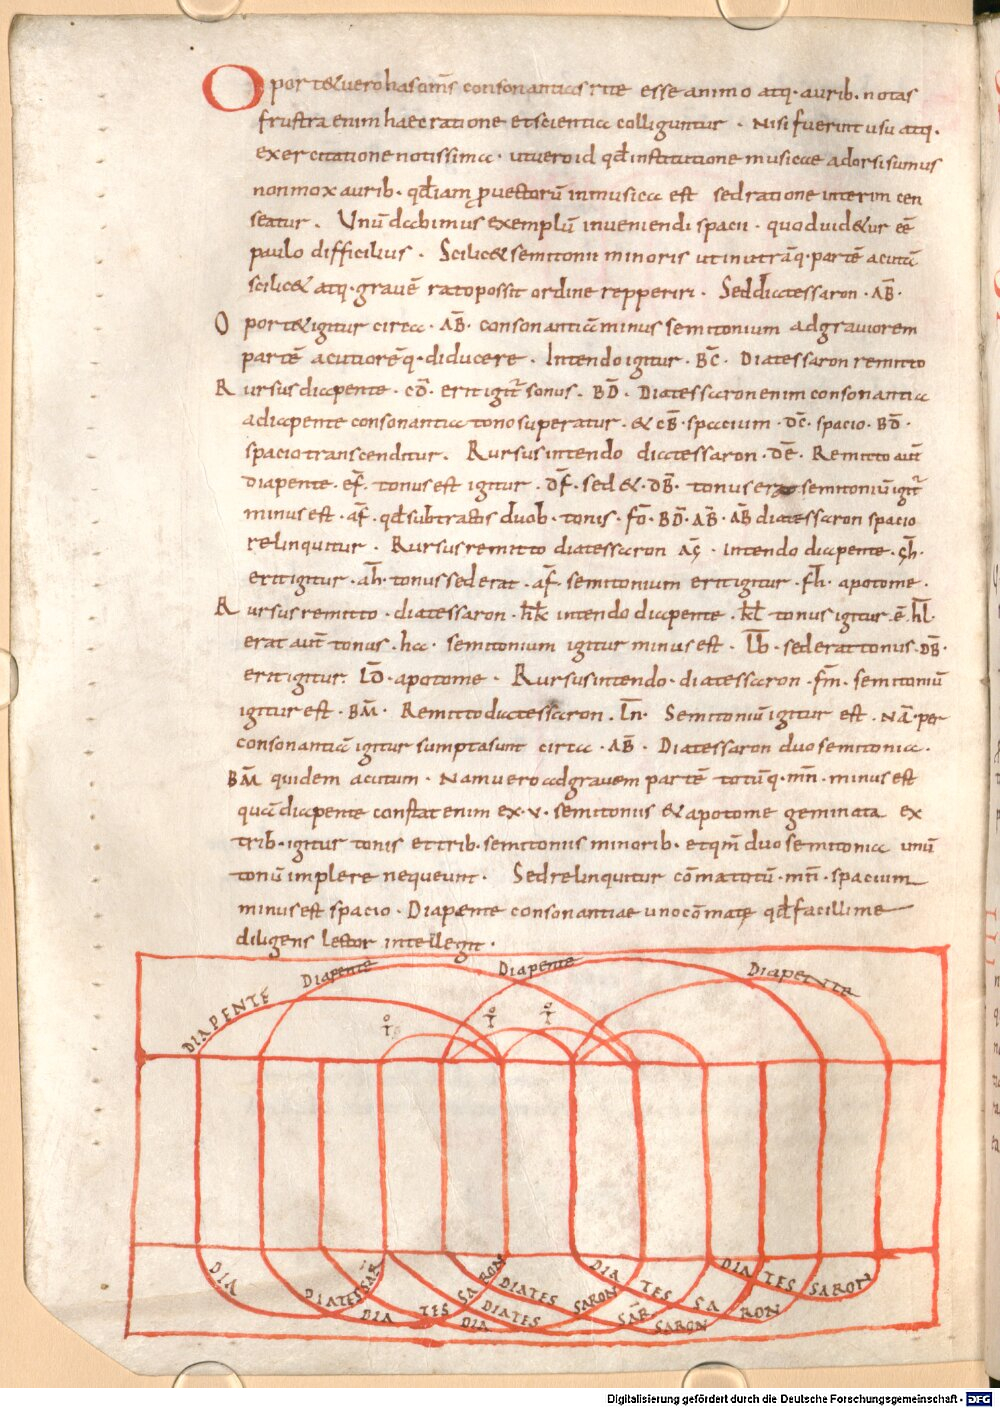 Oporte&vero has om̄s consonantias rite esse animo atq· aurib· notas
frustra enim haec ratione et scientia colliguntur · Nisi fuerint usu atq·
exercitatione notissimae · ut vero id qđ institutione musicae adorsi sumus
non mox aurib· qđ iam p̱vectorū in musica est sed ratione interim cen
seatur . Unū dabimus exemplū inveniendi spacii · quod vid&ur eē
paulo difficilius . Scilic& semitonii minoris ut in utrāq· partē acutā
scilic& atq· gravē rato possit ordine repperiri . Sed diatessaron · AB̄ ·
Oport& igitur circa · AB̄ · consonantiā minus semitonium ad graviorem
partē acutiorēq· diducere . Intendo igitur · BC̄ · Diatessaron remitto
Rursus diapente · CD̄ · erit igit̄ sonus · BD̄ · Diatessaron enim consonantia
a diapente consonantia tono superatur · & CB̄ · spacium · DC̄ · spacio · BD̄ ·
spacio transcenditur . Rursus intendo diatessaron · DĒ · Remitto aut̄
diapente · EF̄ · tonus est igitur · DF̄ · sed & · DB̄ · tonus ergo semitoniū igit̄
minus est · AF̄ · qđ subtractis duob· tonis · FD̄ · BD̄ · AB̄ · AB̄ diatessaron spacio
relinquitur . Rursus remitto diatessaron AḠ · intendo diapente · GH̄ ·
erit igitur · AH̄ · tonus sed erat · AF̄ · semitonium erit igitur · FH̄ · apotome ·
Rursus remitto · diatessaron · HK̄ intendo diapente · KL̄ tonus igitur · ē · HL̄ ·
erat aut̄ tonus · ha · semitonium igitur minus est · LB̄ · sed erat tonus · DB̄ ·
erit igitur · LD̄ · apotome · Rursus intendo · diatessaron · FM̄ · semitoniū
igitur est · BM̄ · Remitto diatessaron · LN̄ · Semitoniū igitur est · NĀ · per
consonantiā igitur sumpta sunt circa · AB̄ · Diatessaron duo semitonia ·
BM̄ quidem acutum · Na vero ad gravem partē totūq· MN̄ · minus est
quā diapente constat enim ex · v · semitoniis & apotome geminata ex
trib· igitur tonis et trib· semitoniis minorib· et qm̄ duo semitonia unū
tonū implere nequeunt · Sed relinquitur cōma totū · MN̄ · spacium
minus est spacio · Diapente consonantiae uno cōmate qđ facillime
diligens lector intellegit ·
Diapente Diapente Diapente
DIAPENTE
T̊ T̊ T̊
DIA DIATESSAR̄ DIA TES SARON DIATES SARON DIA TES SARON DIA TES SARON
DIA DIATES SAR̄ SARON